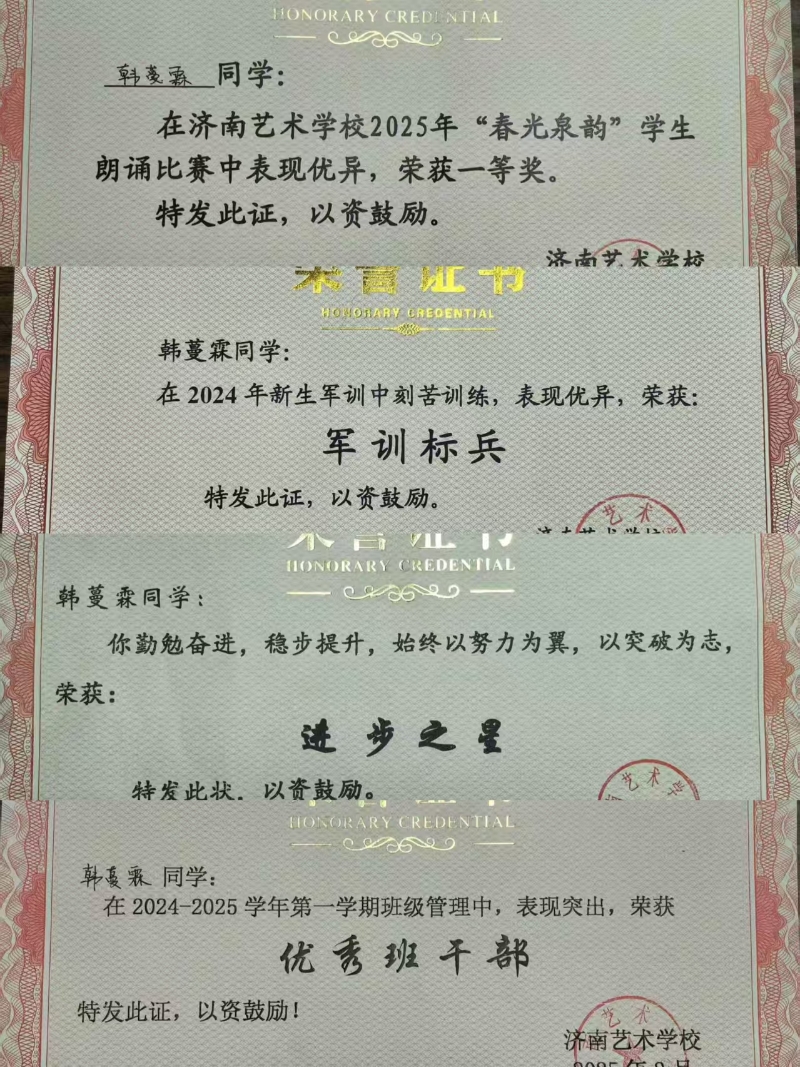 HONORARY CREDENTIAL
韩蔓霖 同学：
在济南艺术学校2025年“春光泉韵”学生
朗诵比赛中表现优异，荣获一等奖。
特发此证，以资鼓励。
济南艺术学校
荣誉证书
HONORARY CREDENTIAL
韩蔓霖同学：
在 2024 年新生军训中刻苦训练，表现优异，荣获：
军训标兵
特发此证，以资鼓励。
艺术
济南艺术学校
荣誉证书
HONORARY CREDENTIAL
韩蔓霖同学：
你勤勉奋进，稳步提升，始终以努力为翼，以突破为志，
荣获：
进步之星
特发此状，以资鼓励。
南艺术学
HONORARY CREDENTIAL
韩蔓霖 同学：
在 2024-2025 学年第一学期班级管理中，表现突出，荣获
优秀班干部
特发此证，以资鼓励！
艺术
济南艺术学校